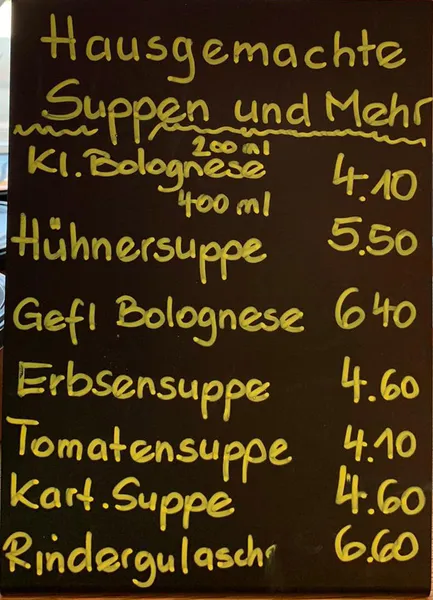 Hausgemachte
Suppen und Mehr
200 ml
Kl. Bolognese 4.10
400 ml
Hühnersuppe 5.50
Gefl Bolognese 640
Erbsensuppe 4.60
Tomatensuppe 4.10
Kart. Suppe 4.60
Rindergulasch 6.60